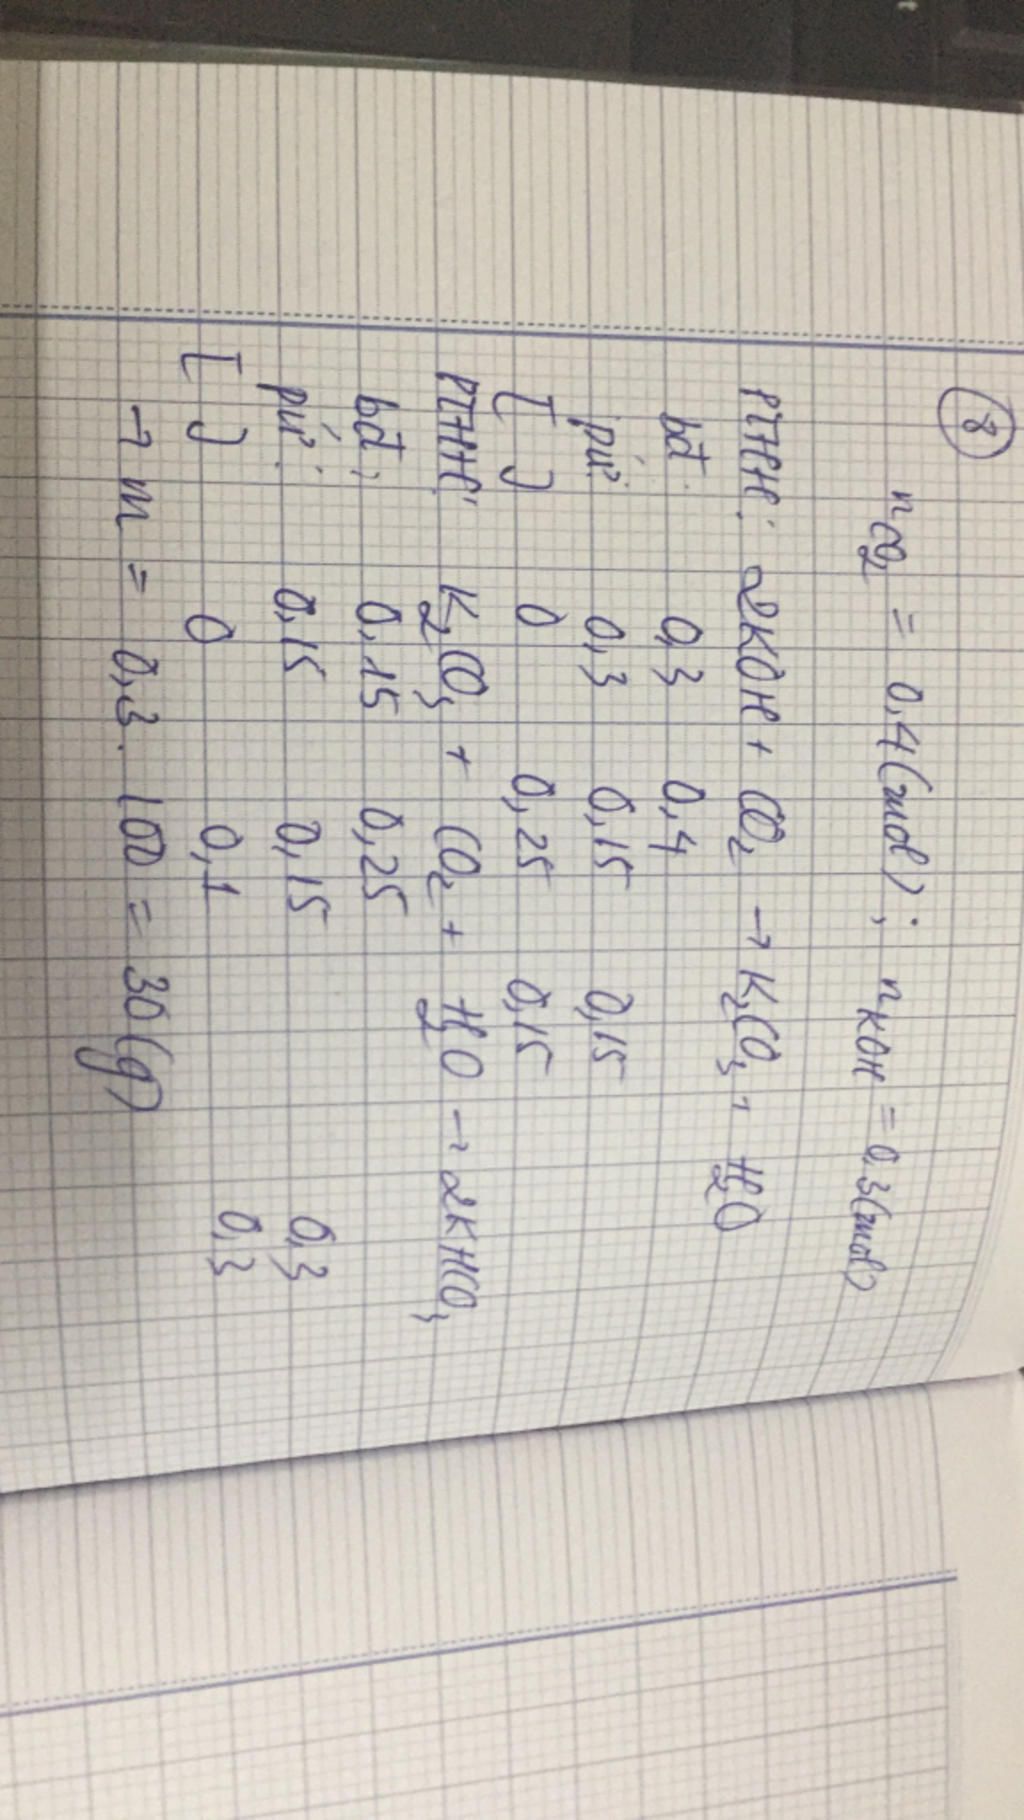 8
nCO2 = 0,4(mol); nKOH = 0,3(mol)
PTHH: 2KOH + CO2 → K2CO3 + H2O
bđ: 0,3 0,4
pứ: 0,3 0,15 0,15
[ ] 0 0,25 0,15
PTHH: K2CO3 + CO2 + H2O → 2KHCO3
bđ: 0,15 0,25
pứ: 0,15 0,15 0,3
[ ] 0 0,1 0,3
→ m = 0,3. 100 = 30(g)